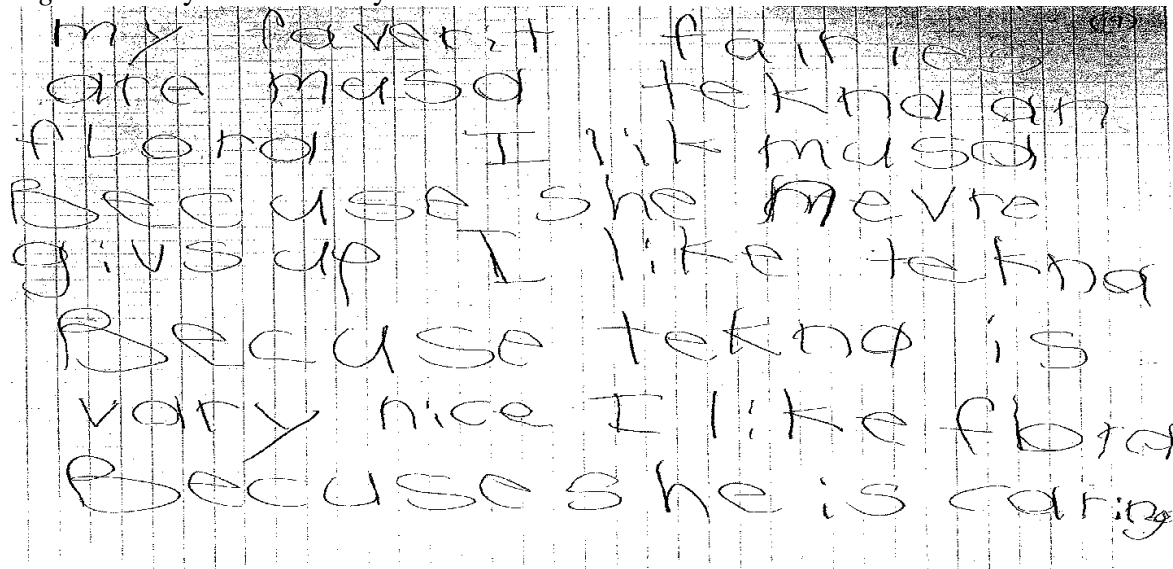 my favorit fairies
are musa tekna an
fLora I lik musa
Becuse she mevre
givs up I like tekna
Becuse tekna is
vary nice I like flora
Becuse she is caring